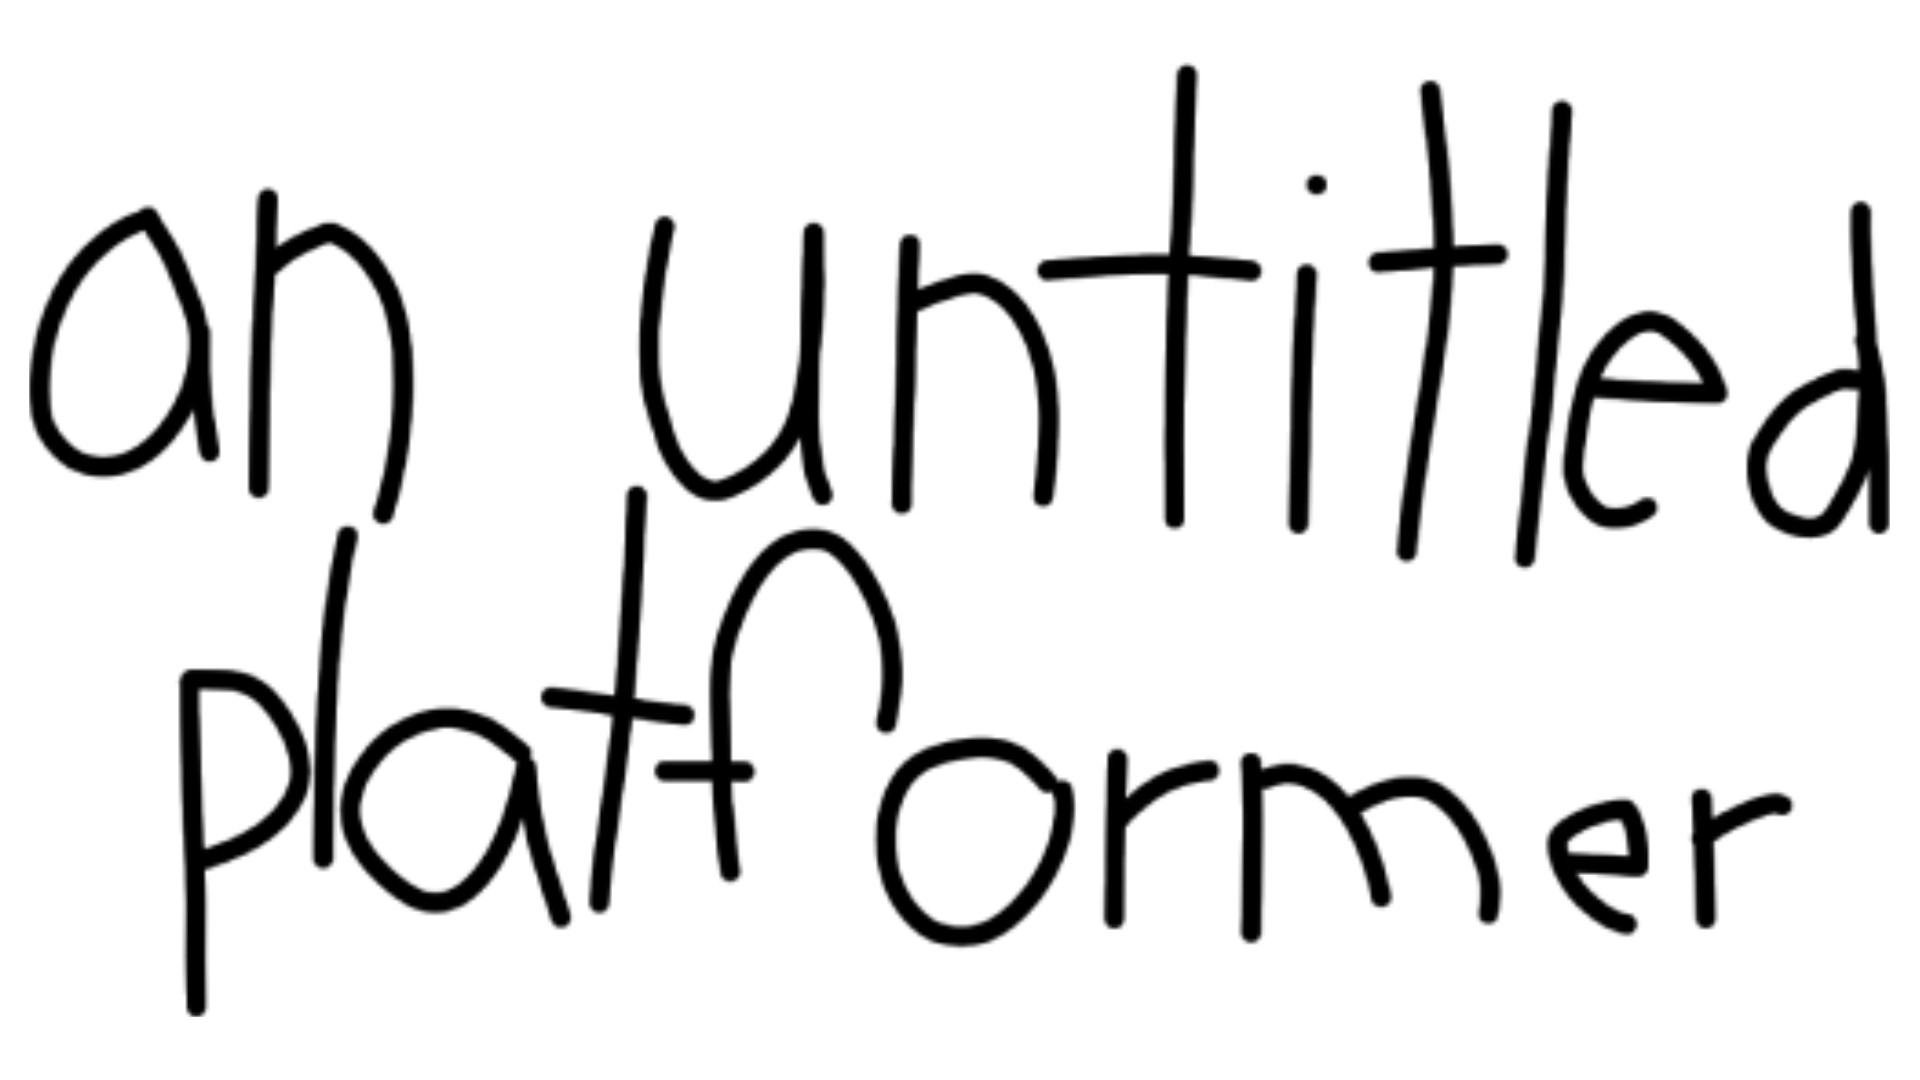 an untitled
platformer